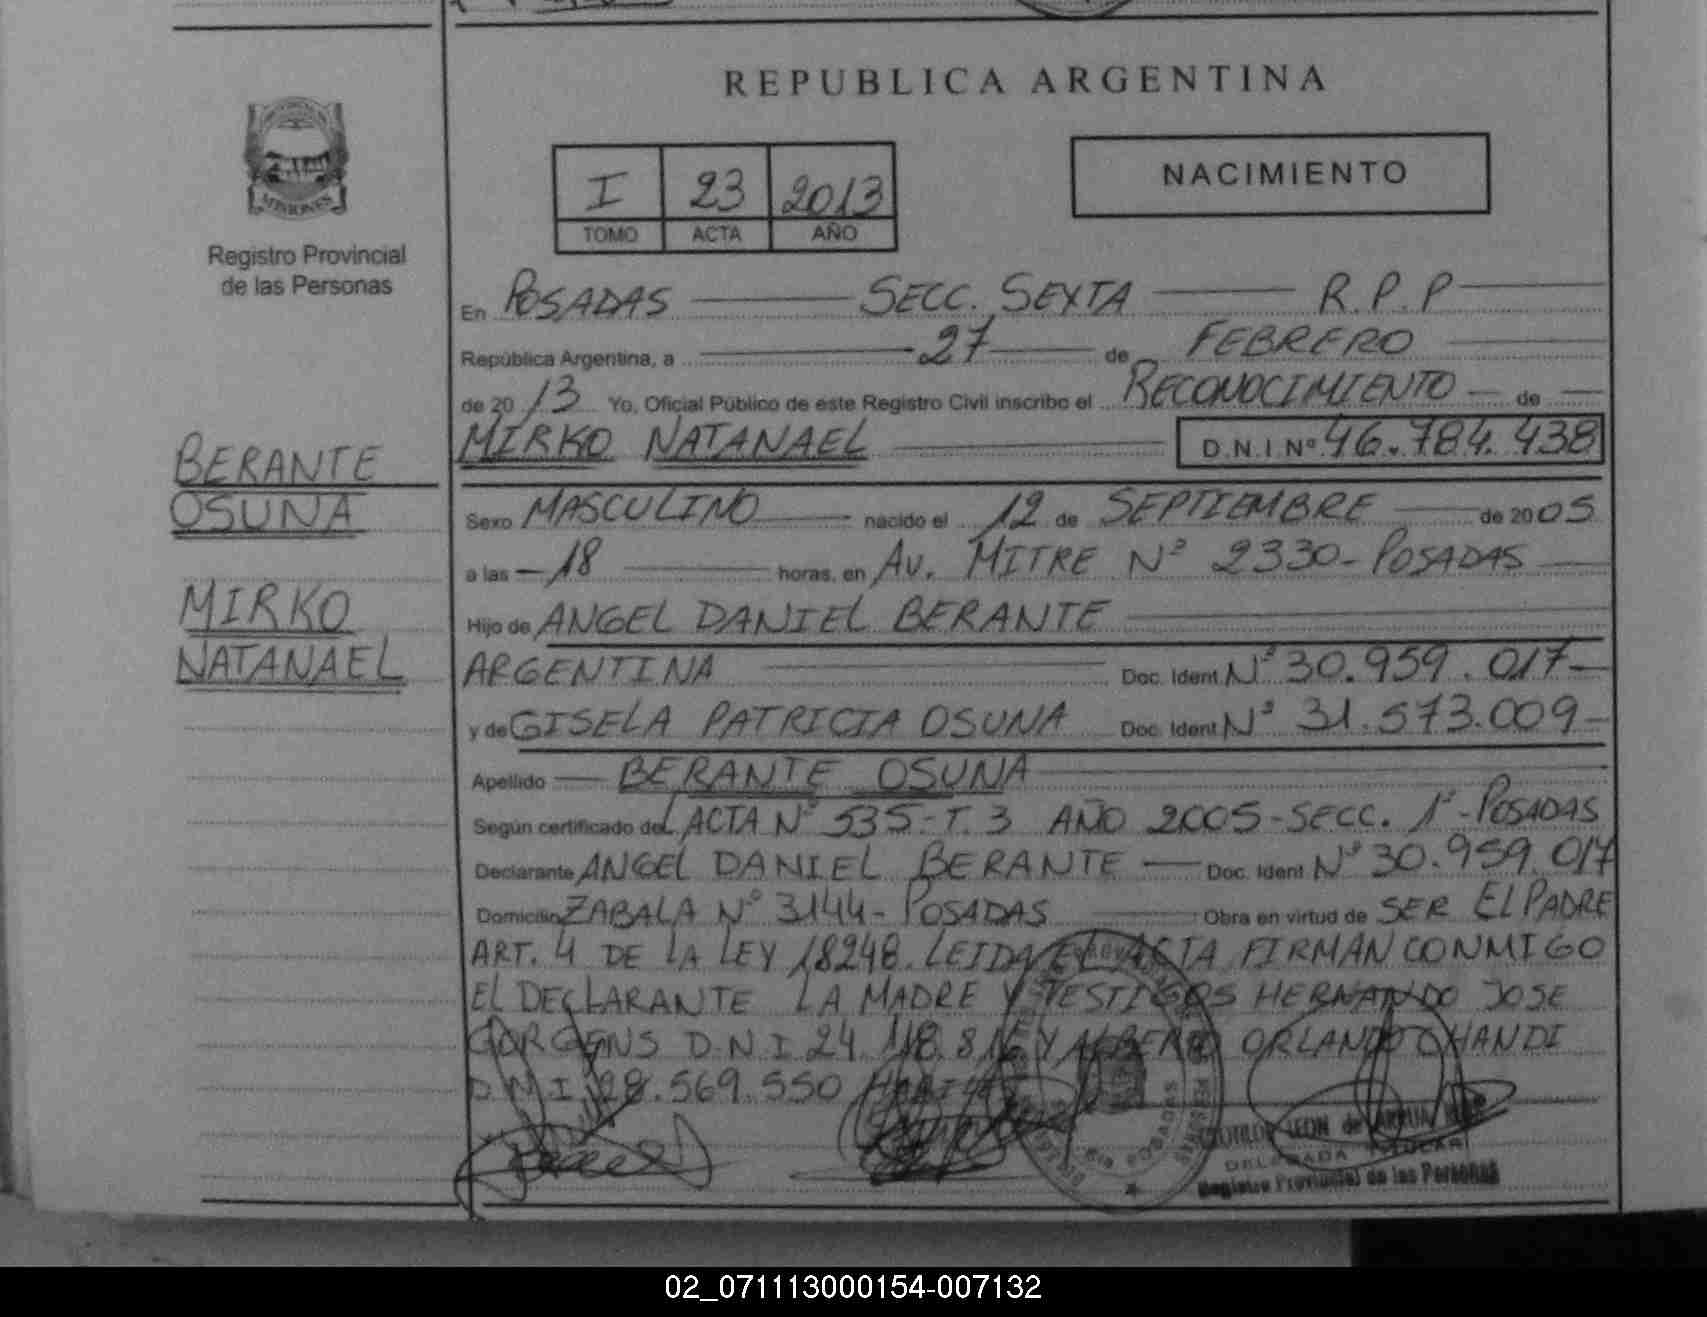 REPUBLICA ARGENTINA
I 23 2013
TOMO ACTA AÑO
NACIMIENTO
MISIONES
Registro Provincial
de las Personas
En POSADAS SECC. SEXTA R.P.P
República Argentina, a 27 de FEBRERO
de 2013 Yo, Oficial Público de este Registro Civil inscribo el RECONOCIMIENTO de
MIRKO NATANAEL D.N.I.Nº 46.784.438
BERANTE
OSUNA
MIRKO
NATANAEL
Sexo MASCULINO nacido el 12 de SEPTIEMBRE de 2005
a las 18 horas, en AV. MITRE Nº 2330-POSADAS
Hijo de ANGEL DANIEL BERANTE
ARGENTINA Doc. Ident Nº 30.959.017-
y de GISELA PATRICIA OSUNA Doc. Ident Nº 31.573.009-
Apellido BERANTE OSUNA
Según certificado del ACTA Nº 535-T.3 AÑO 2005-SECC. 1ª-POSADAS
Declarante ANGEL DANIEL BERANTE Doc. Ident Nº 30.959.017
Domicilio ZABALA Nº 3144-POSADAS Obra en virtud de SER EL PADRE
ART. 4 DE LA LEY 18248. LEIDA EL ACTA FIRMAN CONMIGO
EL DECLARANTE LA MADRE Y TESTIGOS HERNANDO JOSE
GORGENS D.N.I 24.118.816 Y ALBERTO ORLANDO CHANDI
D.N.I 28.569.550
LEON de
DELEGADA TITULAR
Registro Provincial de las Personas
POSADAS
02_071113000154-007132